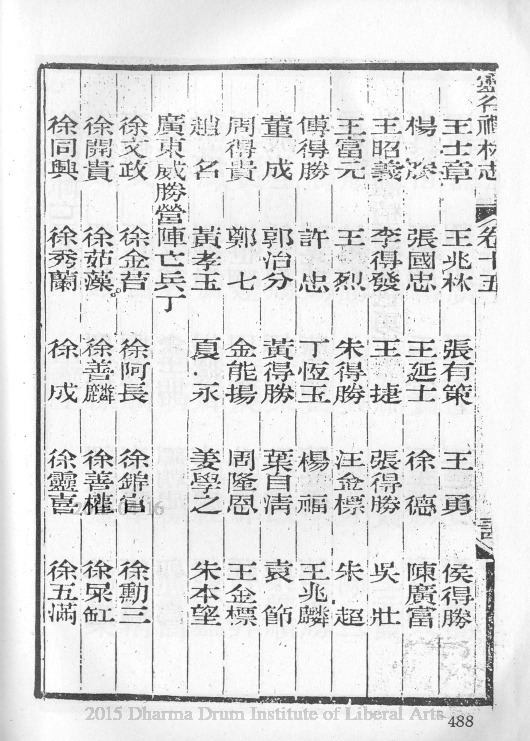 靈谷禪林志 卷十五
王士章 王兆林 張有策 王勇 侯得勝
楊 張國忠 王延士 徐德 陳廣富
王昭義 李得發 王捷 張得勝 吳壯
王富元 王烈 朱得勝 汪金標 朱超
傅得勝 許忠 丁恆玉 楊福 王兆麟
董成 郭治分 黃得勝 葉自清 袁節
周得貴 鄭七 金能揚 周隆恩 王金標
趙名 黃孝玉 夏永 姜學之 朱本望
廣東威勝營陣亡兵丁
徐文政 徐金苔 徐阿長 徐錦官 徐勳三
徐開貴 徐茹藻 徐善麟 徐善權 徐 缸
徐同興 徐秀蘭 徐成 徐靈喜 徐五滿
2015 Dharma Drum Institute of Liberal Arts
488